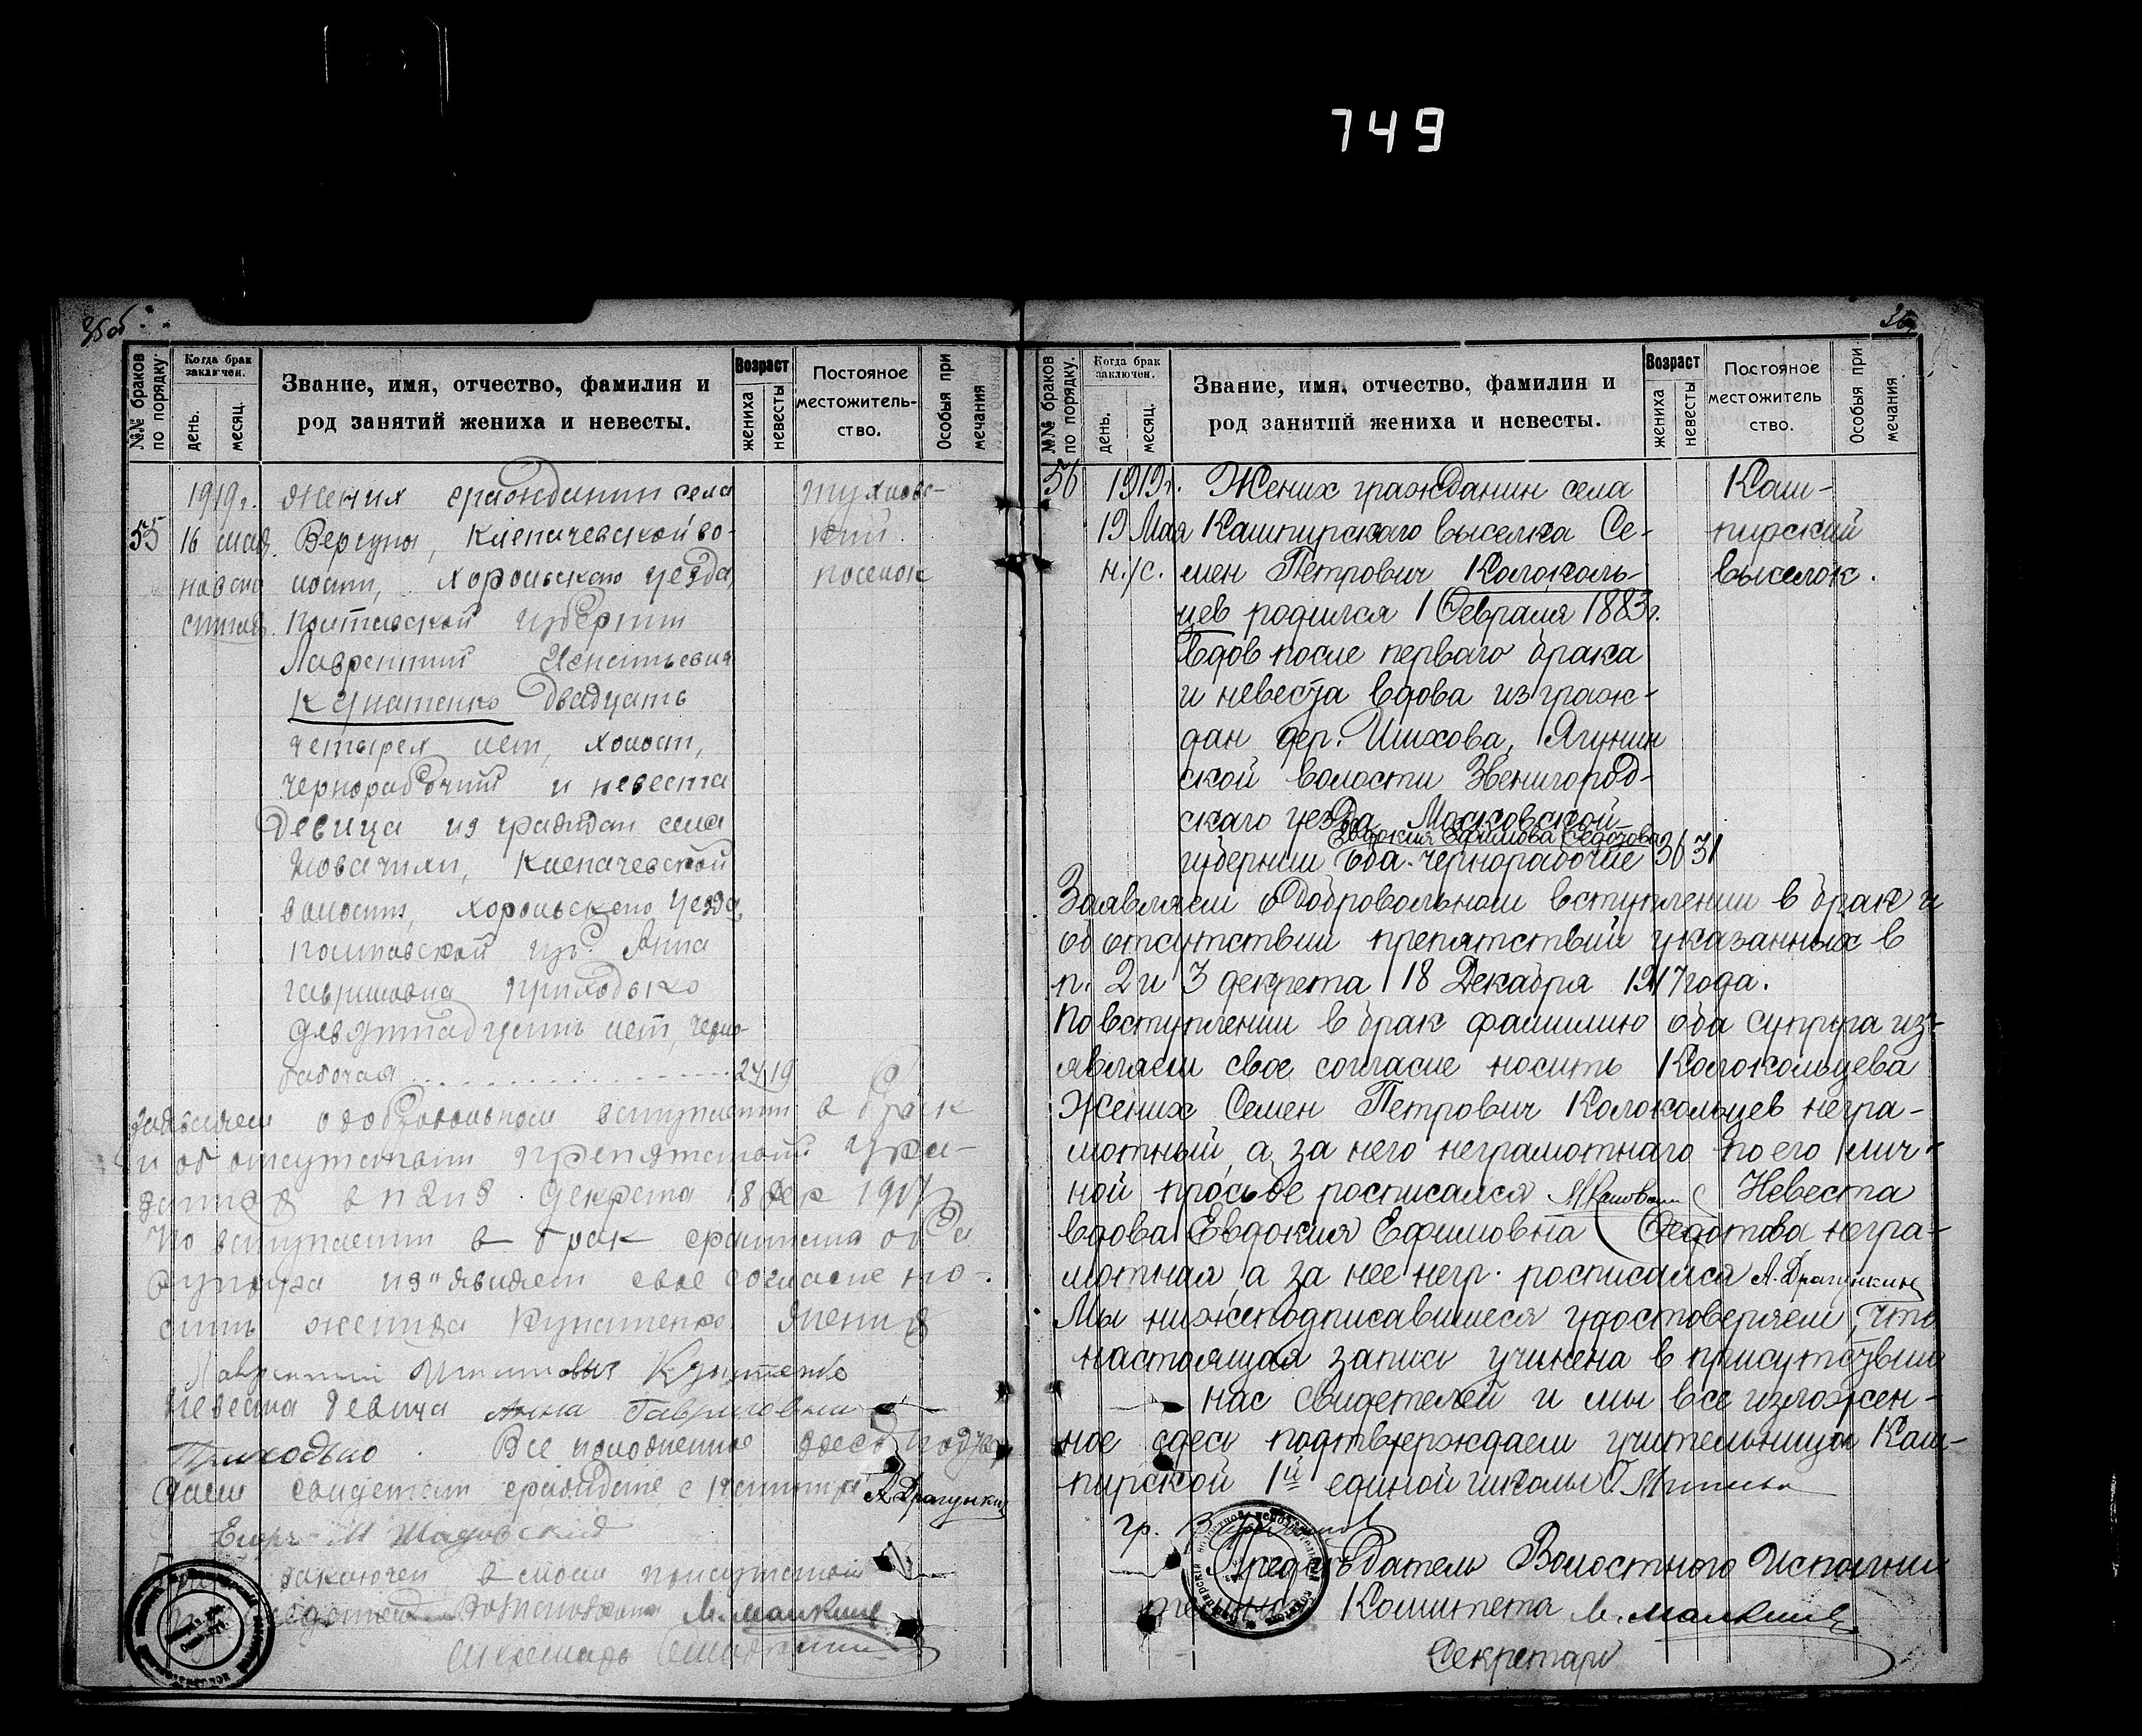 749
35об
№№ браков по порядку.
Когда брак заключен.
день.
месяц.
Звание, имя, отчество, фамилия и
род занятий жениха и невесты.
Возраст
жениха
невесты
Постояное
местожитель-
ство.
Особыя при
мечания
1919г. Жених гражданин села
55 16 мая Вергуны, Клепачевской во-
новаго лости, Хорольскаго уезда,
стиля. Полтавской губернии
поселок
Лаврентий Игнатьевич
Кунатенко двадцать
четырех лет, холост,
чернорабочий и невеста
девица из граждан села
Клепачевской
волости, Хорольскаго уезда,
Полтавской губ. Анна
Гавриловна Приходько
девятнадцать лет, черно-
рабочая 24 19
Заявляем о добровольном вступлении в брак
и об отсутствии препятствий ука-
занных в п 2 и 3 декрета 18 дек 1917
По вступлении в брак фамилию оба
супруга из"являем свое согласие но-
сить жениха Кунатенко. Жених
Лаврентий Кунатенко
Невеста девица Анна Гавриловна
Приходько. Все изложенное здесь подтвер
ждаем свидетели граждане А. Драгункин
Егор
заключен в моем присутствии
М. Малкин
Секретарь
№№ браков по порядку.
Когда брак заключен.
день.
месяц.
Звание, имя, отчество, фамилия и
род занятий жениха и невесты.
Возраст
жениха
невесты
Постояное
местожитель
ство.
Особыя при
мечания
56 1919г. Жених гражданин села Каш-
19 Мая Кашпирского выселка Се- пирский
н./с. мен Петрович Колоколь- выселок.
цев родился 1 Февраля 1883г.
вдов после перваго брака
и невеста вдова из граж-
дан дер. Шихова, Ягунин
ской волости Звенигород-
скаго уезда Московской
Евдокия Ефимова Федотова
губернии Оба чернорабочие 36 31
Заявляем о добровольном вступлении в брак и
об отсутствии препятствий указанных в
п. 2 и 3 декрета 18 Декабря 1917 года.
По вступлении в брак фамилию оба супруга из-
являем свое согласие носить Колокольцева
Жених Семен Петрович Колокольцев негра-
мотный, а за него неграмотнаго по его лич-
ной просьбе росписался Невеста
вдова Евдокия Ефимовна Федотова негра-
мотная, а за нее негр. росписался А. Драгункин
Мы нижеподписавшиеся удостоверяем, что
настоящая запись учинена в присутствии
нас свидетелей и мы все изложен-
ное здесь подтверждаем учительница Каш-
пирской 1й единой школы
гр.
Председатель Волостного Исполни
тельного Комитета М. Малкин
Секретарь